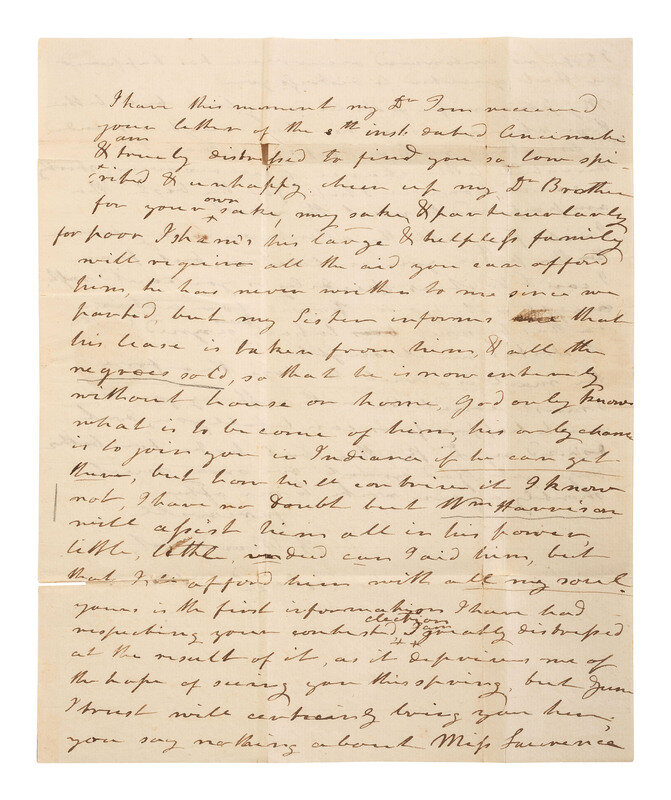 I have this moment my Dr Tom received
your letter of the th inst dated Cincinati
& am truely distressed to find you so low spi-
rited & unhappy. cheer up my Dr Brother
for your own sake, my sake, & particularly
for poor Isham's his large & helpless family
will require all the aid you can afford
him, he has never written to me since we
parted, but my Sister informs that
his lease is taken from him, & all the
negroes sold, so that he is now entirely
without house or home, God only knows
what is to become of him, his only chance
is to join you in Indiana if he can get
there, but how he'll contrive it I know
not, I have no doubt but Wm Harrison
will assist him all in his power
little, little, indeed can I aid him, but
that I afford him with all my soul.
yours is the first information I have had
respecting your contested election I am greatly distressed
at the result of it, as it deprives me of
the hope of seeing you this spring, but June
I trust will certainly bring you here,
you say nothing about Miss Lawrence